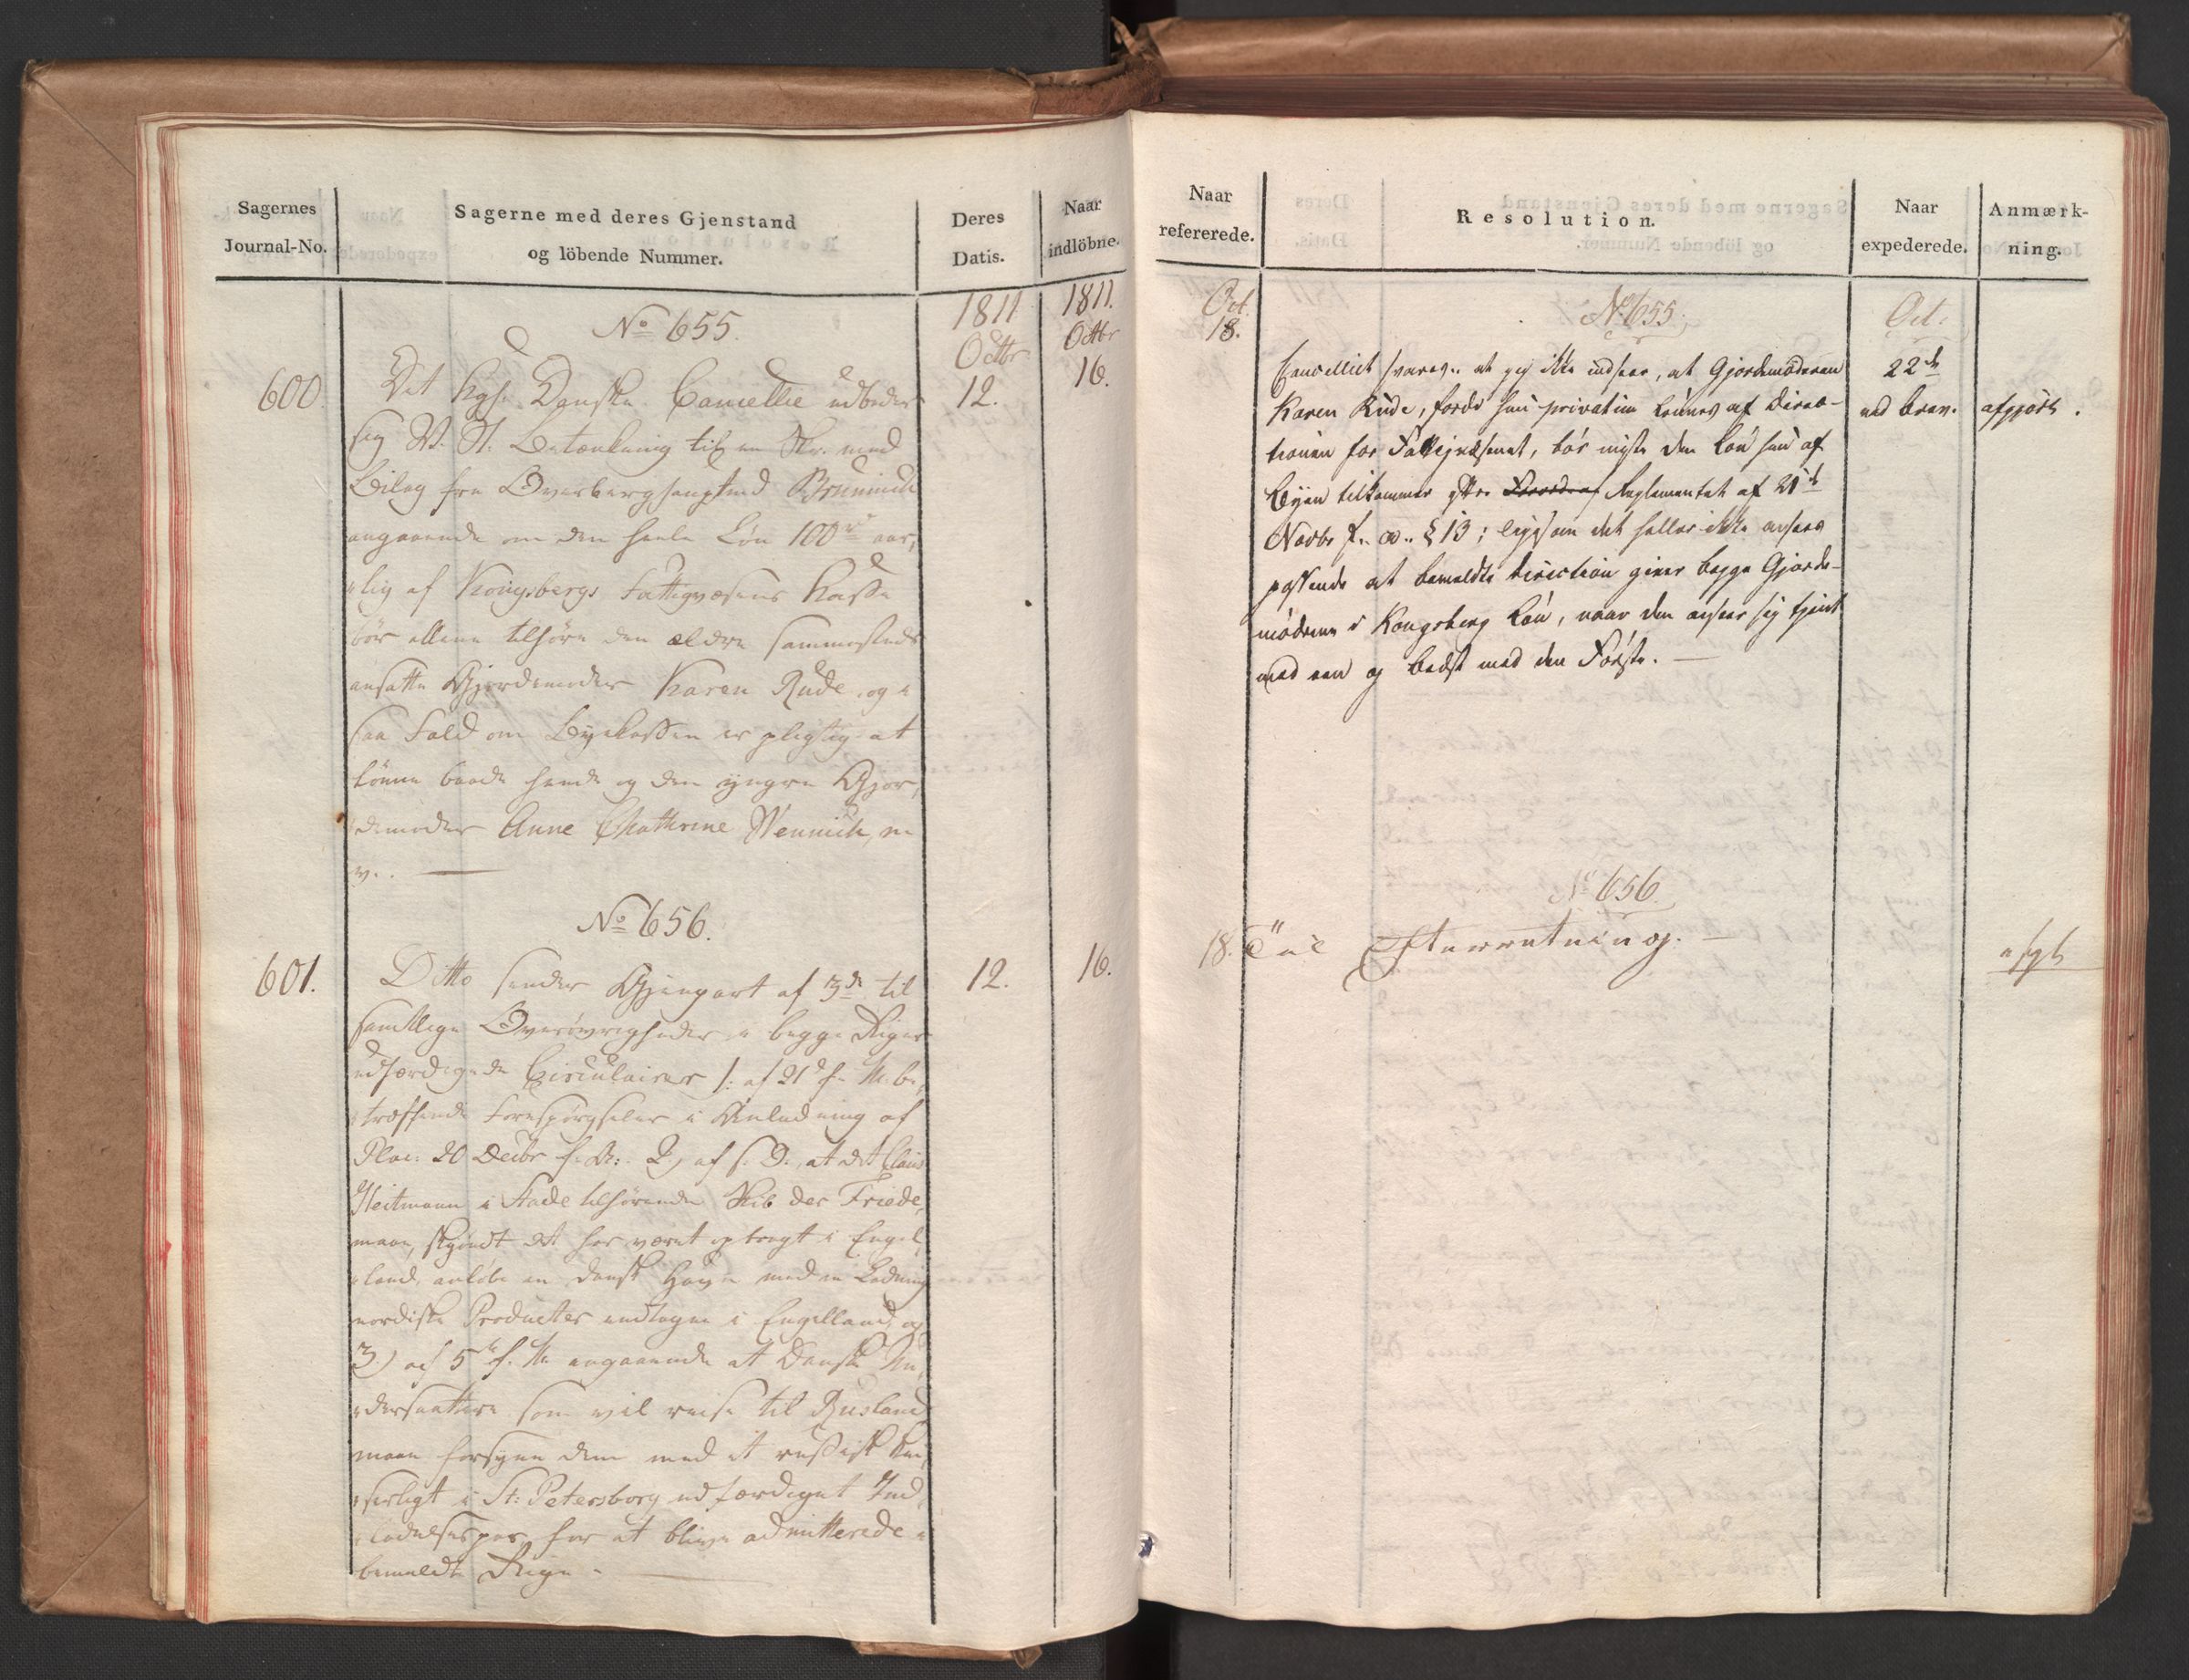 Sagernes
Journal-No.
Sagerne med deres Gjenstand
og löbende Nummer.
Deres
Datis.
Naar
indlöbne.
1811
Octbr
1811.
Octbr
No 655.
600 Det Kgl. Danske Cancellie udbeder 12. 16.
sig St. H. Betænkning til en Skr. med
Bilag fra Overberghauptmd Brünnich
angaaende om den heele Løn 100 rd aar,
lig af Kongsbergs Fattigvæsens Kasse
bør allene tilhøre den ældre sammesteds
ansatte Gjordemoder Karen Rude, og i
saa Fald om Byekassen er pligtig at
lønne baade hende og den yngre Gjor,
demoder Anne Chathrine Wennich, m
v. .
No 656.
601. Ditto sender Gjenpart af 3de til 12. 16.
samtlige Overøvrigheder i begge Riger
udfærdigede Circulairer 1: af 21 d f. M. be,
træffende Forespørgseler i Anledning af
Plac: 20 Decbr f. A: 2) af s. D., at det Claus
Heitmann i Stade tilhørende Skib der Friede,
maae, skjøndt det har været opbragt i Engel,
land, anløbe en dansk Havn med en Ladning
nordiske Producter indtagne i Engelland, og
3) af 5te f. M. angaaende at Danske Un,
dersaatter som vil reise til Rusland
maae forsyne dem med et russisk Kei,
serligt i St: Petersborg udfærdiget Ind,
ladelsespas for at blive admitterede i
bemeldte Rige.
Naar
refererede.
Resolution.
Naar
expederede.
Anmærk-
ning.
Oct. No 655. Oct.
18.
Cancelliet svares: at jeg ikke indseer, at Gjordemoderen 22de
Karen Rude, fordi hun privatim lønnes af Direc- ved Brev. afgjort.
tionen for Fattigvæsenet, bør miste den Løn hun af
Byen tilkommer efter Forordn. af Reglementet af 21de
Novbr f. A. § 13; ligesom det heller ikke ansees
passende at bemeldte Direction giver begge Gjorde-
mødrene i Kongsberg Løn, naar den anseer sig tjent
med een og bedst med den Første.
No 656.
18. Til Efterretning. afgl.